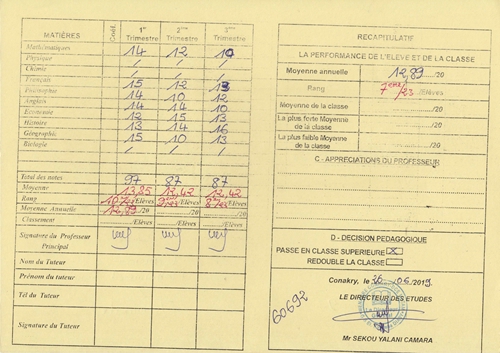 MATIÈRES Coéf. 1er Trimestre 2ème Trimestre 3ème Trimestre
Mathématiques 14 12 10
Physique / / /
Chimie / / /
Français 15 12 13
Philosophie 14 10 12
Anglais 14 14 10
Economie 12 15 13
Histoire 13 14 16
Géographie 15 10 13
Biologie / / /
Total des notes 97 87 87
Moyenne 13,85 12,42 12,42
Rang /Elèves /Elèves /Elèves
Moyenne Annuelle 12,89/20 /20 /20
Classement /Elèves /Elèves /Elèves
Signature du Professeur Principal
Nom du Tuteur
Prénom du tuteur
Tél du Tuteur
Signature du Tuteur
RECAPITULATIF
LA PERFORMANCE DE L'ELEVE ET DE LA CLASSE
Moyenne annuelle 12,89/20
Rang 7ème/23/Elèves
Moyenne de la classe /20
La plus forte Moyenne de la classe /20
La plus faible Moyenne de la classe /20
C - APPRECIATIONS DU PROFESSEUR
D - DECISION PEDAGOGIQUE
PASSE EN CLASSE SUPERIEURE X
REDOUBLE LA CLASSE
Conakry, le 26/06/2019
LE DIRECTEUR DES ETUDES
60692
Mr SEKOU YALANI CAMARA